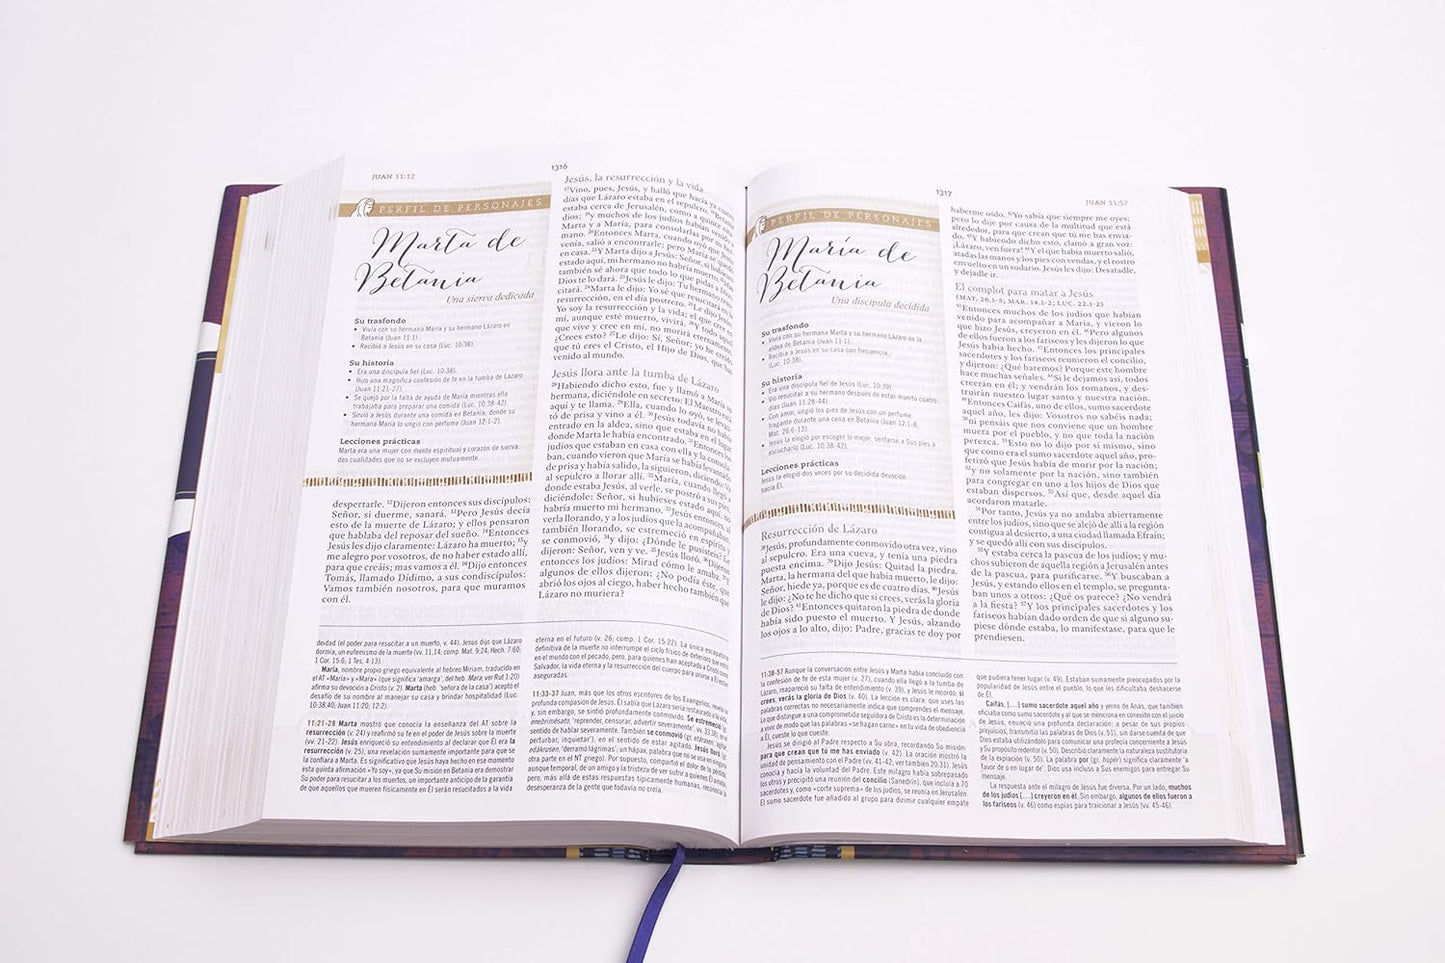 JUAN 11:12
1316
PERFIL DE PERSONAJES
Marta de
Betania
Una sierva dedicada
Su trasfondo
• Vivía con su hermana María y su hermano Lázaro en
Betania (Juan 11:1).
• Recibió a Jesús en su casa (Luc. 10:38).
Su historia
• Era una discípula fiel (Luc. 10:38).
• Hizo una magnífica confesión de fe en la tumba de Lázaro
(Juan 11:21-27).
• Se quejó por la falta de ayuda de María mientras ella
trabajaba para preparar una comida (Luc. 10:38-42).
• Sirvió a Jesús durante una comida en Betania, donde su
hermana María lo ungió con perfume (Juan 12:1-2).
Lecciones prácticas
Marta era una mujer con mente espiritual y corazón de sierva:
dos cualidades que no se excluyen mutuamente.
despertarle. 12Dijeron entonces sus discípulos:
Señor, si duerme, sanará. 13Pero Jesús decía
esto de la muerte de Lázaro; y ellos pensaron
que hablaba del reposar del sueño. 14Entonces
Jesús les dijo claramente: Lázaro ha muerto; 15y
me alegro por vosotros, de no haber estado allí,
para que creáis; mas vamos a él. 16Dijo entonces
Tomás, llamado Dídimo, a sus condiscípulos:
Vamos también nosotros, para que muramos
con él.
Jesús, la resurrección y la vida
17Vino, pues, Jesús, y halló que hacía ya cuatro
días que Lázaro estaba en el sepulcro. 18Betania
estaba cerca de Jerusalén, como a quince esta-
dios; 19y muchos de los judíos habían venido a
Marta y a María, para consolarlas por su her-
mano. 20Entonces Marta, cuando oyó que Jesús
venía, salió a encontrarle; pero María se quedó
en casa. 21Y Marta dijo a Jesús: Señor, si hubieses
estado aquí, mi hermano no habría muerto. 22Mas
también sé ahora que todo lo que pidas a Dios,
Dios te lo dará. 23Jesús le dijo: Tu hermano resu-
citará. 24Marta le dijo: Yo sé que resucitará en la
resurrección, en el día postrero. 25Le dijo Jesús:
Yo soy la resurrección y la vida; el que cree en
mí, aunque esté muerto, vivirá. 26Y todo aquel
que vive y cree en mí, no morirá eternamente.
¿Crees esto? 27Le dijo: Sí, Señor; yo he creído
que tú eres el Cristo, el Hijo de Dios, que has
venido al mundo.
Jesús llora ante la tumba de Lázaro
28Habiendo dicho esto, fue y llamó a María su
hermana, diciéndole en secreto: El Maestro está
aquí y te llama. 29Ella, cuando lo oyó, se levan-
tó de prisa y vino a él. 30Jesús todavía no había
entrado en la aldea, sino que estaba en el lugar
donde Marta le había encontrado. 31Entonces los
judíos que estaban en casa con ella y la consola-
ban, cuando vieron que María se había levantado
de prisa y había salido, la siguieron, diciendo: Va
al sepulcro a llorar allí. 32María, cuando llegó a
donde estaba Jesús, al verle, se postró a sus pies,
diciéndole: Señor, si hubieses estado aquí, no
habría muerto mi hermano. 33Jesús entonces, al
verla llorando, y a los judíos que la acompañaban,
también llorando, se estremeció en espíritu y
se conmovió, 34y dijo: ¿Dónde le pusisteis? Le
dijeron: Señor, ven y ve. 35Jesús lloró. 36Dijeron
entonces los judíos: Mirad cómo le amaba. 37Y
algunos de ellos dijeron: ¿No podía éste, que
abrió los ojos al ciego, haber hecho también que
Lázaro no muriera?
deidad (el poder para resucitar a un muerto, v. 44). Jesús dijo que Lázaro
dormía, un eufemismo de la muerte (vv. 11,14; comp. Mat. 9:24; Hech. 7:60;
1 Cor. 15:6; 1 Tes. 4:13).
María, nombre propio griego equivalente al hebreo Miriam, traducido en
el AT «María» y «Mara» (que significa 'amarga', del heb. Mara; ver Rut 1:20)
afirma su devoción a Cristo (v. 2). Marta (heb. 'señora de la casa') aceptó el
desafío de su nombre al manejar su hogar y brindar hospitalidad (Luc.
10:38,40; Juan 11:20; 12:2).
11:21-28 Marta mostró que conocía la enseñanza del AT sobre la
resurrección (v. 24) y reafirmó su fe en el poder de Jesús sobre la muerte
(vv. 21-22). Jesús enriqueció su entendimiento al declarar que Él era la
resurrección (v. 25), una revelación sumamente importante para que se
la confiara a Marta. Es significativo que Jesús haya hecho en ese momento
esta quinta afirmación «Yo soy», ya que Su misión en Betania era demostrar
Su poder para resucitar a los muertos, un importante anticipo de la garantía
de que aquellos que mueren físicamente en Él serán resucitados a la vida
eterna en el futuro (v. 26; comp. 1 Cor. 15:22). La única escapatoria
definitiva de la muerte no interrumpe el ciclo físico de deterioro que entró
en el mundo con el pecado, pero, para quienes han aceptado a Cristo como
Salvador, la vida eterna y la resurrección del cuerpo para unirse a Él están
aseguradas.
11:33-37 Juan, más que los otros escritores de los Evangelios, revela la
profunda compasión de Jesús. Él sabía que Lázaro sería restaurado a la vida,
y, sin embargo, se sintió profundamente conmovido. Se estremeció (gr.
enebrimēsato, 'reprender, censurar, advertir severamente', vv. 33,38) en el
sentido de hablar severamente. También se conmovió (gr. etaraxen, 'agitar,
perturbar, inquietar'), en el sentido de estar agitado. Jesús lloró (gr.
edákrusen, 'derramo lágrimas'; un hápax, palabra que no se usa en ninguna
otra parte en el NT griego). Por supuesto, compartió el dolor de la pérdida,
aunque temporal, de un amigo y la tristeza de ver sufrir a quienes Él amaba;
pero, más allá de estas respuestas típicamente humanas, reconocía la
desesperanza de la gente que todavía no creía.
1317
JUAN 11:57
PERFIL DE PERSONAJES
María de
Betania
Una discípula decidida
Su trasfondo
• Vivía con su hermana Marta y su hermano Lázaro en la
aldea de Betania (Juan 11:1).
• Recibía a Jesús en su casa con frecuencia
(Luc. 10:38).
Su historia
• Era una discípula fiel de Jesús (Luc. 10:39).
• Vio resucitar a su hermano después de estar muerto cuatro
días (Juan 11:28-44).
• Con amor, ungió los pies de Jesús con un perfume
fragante durante una cena en Betania (Juan 12:1-8,
Mat. 26:6-13).
• Jesús la elogió por escoger lo mejor, sentarse a Sus pies a
escucharlo (Luc. 10:38-42).
Lecciones prácticas
Jesús la elogió dos veces por su decidida devoción
hacia Él.
Resurrección de Lázaro
38Jesús, profundamente conmovido otra vez, vino
al sepulcro. Era una cueva, y tenía una piedra
puesta encima. 39Dijo Jesús: Quitad la piedra.
Marta, la hermana del que había muerto, le dijo:
Señor, hiede ya, porque es de cuatro días. 40Jesús
le dijo: ¿No te he dicho que si crees, verás la gloria
de Dios? 41Entonces quitaron la piedra de donde
había sido puesto el muerto. Y Jesús, alzando
los ojos a lo alto, dijo: Padre, gracias te doy por
haberme oído. 42Yo sabía que siempre me oyes;
pero lo dije por causa de la multitud que está
alrededor, para que crean que tú me has envia-
do. 43Y habiendo dicho esto, clamó a gran voz:
¡Lázaro, ven fuera! 44Y el que había muerto salió,
atadas las manos y los pies con vendas, y el rostro
envuelto en un sudario. Jesús les dijo: Desatadle,
y dejadle ir.
El complot para matar a Jesús
(MAT. 26.1-5; MAR. 14.1-2; LUC. 22.1-2)
45Entonces muchos de los judíos que habían
venido para acompañar a María, y vieron lo
que hizo Jesús, creyeron en él. 46Pero algunos
de ellos fueron a los fariseos y les dijeron lo que
Jesús había hecho. 47Entonces los principales
sacerdotes y los fariseos reunieron el concilio,
y dijeron: ¿Qué haremos? Porque este hombre
hace muchas señales. 48Si le dejamos así, todos
creerán en él; y vendrán los romanos, y des-
truirán nuestro lugar santo y nuestra nación.
49Entonces Caifás, uno de ellos, sumo sacerdote
aquel año, les dijo: Vosotros no sabéis nada;
50ni pensáis que nos conviene que un hombre
muera por el pueblo, y no que toda la nación
perezca. 51Esto no lo dijo por sí mismo, sino
que como era el sumo sacerdote aquel año, pro-
fetizó que Jesús había de morir por la nación;
52y no solamente por la nación, sino también
para congregar en uno a los hijos de Dios que
estaban dispersos. 53Así que, desde aquel día
acordaron matarle.
54Por tanto, Jesús ya no andaba abiertamente
entre los judíos, sino que se alejó de allí a la región
contigua al desierto, a una ciudad llamada Efraín;
y se quedó allí con sus discípulos.
55Y estaba cerca la pascua de los judíos; y mu-
chos subieron de aquella región a Jerusalén antes
de la pascua, para purificarse. 56Y buscaban a
Jesús, y estando ellos en el templo, se pregunta-
ban unos a otros: ¿Qué os parece? ¿No vendrá
a la fiesta? 57Y los principales sacerdotes y los
fariseos habían dado orden de que si alguno su-
piese dónde estaba, lo manifestase, para que le
prendiesen.
11:38-57 Aunque la conversación entre Jesús y Marta había concluido con
la confesión de fe de esta mujer (v. 27), cuando ella llegó a la tumba de
Lázaro, reapareció su falta de entendimiento (v. 39), y Jesús le recordó, si
crees, verás la gloria de Dios (v. 40). La lección es clara: que uses las
palabras correctas no necesariamente indica que comprendes el mensaje.
Lo que distingue a una comprometida seguidora de Cristo es la determinación
a vivir de modo que las palabras «se hagan carne» en tu vida de obediencia
a Él, cueste lo que cueste.
Jesús se dirigió al Padre respecto a Su obra, recordando Su misión:
para que crean que tú me has enviado (v. 42). La oración mostró la
unidad de pensamiento con el Padre (vv. 41-42; ver también 20:31). Jesús
conocía y hacía la voluntad del Padre. Este milagro había sobrepasado
los otros y precipitó una reunión del concilio (Sanedrín), que incluía a 70
sacerdotes y, como «corte suprema» de los judíos, se reunía en Jerusalén.
El sumo sacerdote fue añadido al grupo para dirimir cualquier empate
que pudiera tener lugar (v. 49). Estaban sumamente preocupados por la
popularidad de Jesús entre el pueblo, lo que les dificultaba deshacerse
de Él.
Caifás, [...] sumo sacerdote aquel año y yerno de Anás, que también
oficiaba como sumo sacerdote y al que se menciona en conexión con el juicio
de Jesús, enunció una profunda declaración; a pesar de sus propios
prejuicios, transmitió las palabras de Dios (v. 51), sin darse cuenta de que
Dios estaba utilizándolo para comunicar una profecía concerniente a Jesús
y Su propósito redentor (v. 50). Describió claramente la naturaleza sustitutoria
de la expiación (v. 50). La palabra por (gr. hupér) significa claramente 'a
favor de o en lugar de'. Dios usa incluso a Sus enemigos para entregar Su
mensaje.
La respuesta ante el milagro de Jesús fue diversa. Por un lado, muchos
de los judíos [...] creyeron en él. Sin embargo, algunos de ellos fueron a
los fariseos (v. 46) como espías para traicionar a Jesús (vv. 45-46).